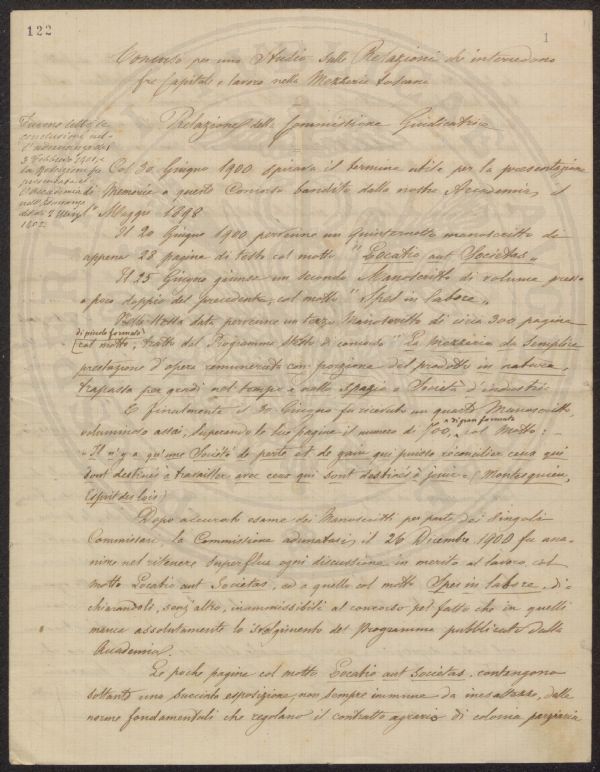 122
1
Concorso per uno Studio sulle Relazioni che intercedono
fra Capitale e lavoro nella Mezzeria toscana
Relazione della Commissione Giudicatrice
Furono lette le
conclusioni nel-
l'adunanza del
3 Febbraio 1901, e
la Relazione fu
presentata al-
l'Accademia
nell'adunanza
del dì 2 Marzo
1902.
Col 30 Giugno 1900 spirava il termine utile per la presentazione
di Memorie a questo Concorso bandito dalla nostra Accademia il
1º Maggio 1898
Il 20 Giugno 1900 pervenne un quinternetto manoscritto di
appena 28 pagine di testo col motto "Locatio aut Societas„
Il 25 Giugno giunse un secondo Manoscritto di volume presso
a poco doppio del precedente, col motto "Spes in labore„
Nella stessa data pervenne un terzo Manoscritto di circa 300 pagine
di piccolo formato
col motto, tratto dal Programma stesso di concorso "La mezzeria da semplice
prestazione d'opera remunerata con porzione del prodotto in natura,
trapassa per gradi nel tempo e nello spazio a Società d'industria
E finalmente il 30 Giugno fu ricevuto un quarto Manoscritto,
di gran formato
voluminoso assai, superando le sue pagine il numero di 700, col Motto:
"Il n'y a qu'une Société de perte et de gain qui puisse réconcilier ceux qui
sont destinés à travailler avec ceux qui sont destinés à jouir. (Montesquieu,
Esprit des lois)
Dopo accurato esame dei Manoscritti per parte dei singoli
Commissari la Commissione adunatasi il 26 Dicembre 1900 fu una-
nime nel ritenere superflua ogni discussione in merito al lavoro, col
motto Locatio aut Societas, ed a quello col motto Spes in labore, di-
chiarandoli, senz'altro, inammissibili al concorso pel fatto che in quelli
manca assolutamente lo svolgimento del Programma pubblicato dalla
Accademia.
Le poche pagine col motto Locatio aut Societas, contengono
soltanto una succinta esposizione, non sempre immune da inesattezze, delle
norme fondamentali che regolano il contratto agrario di colonia parziaria